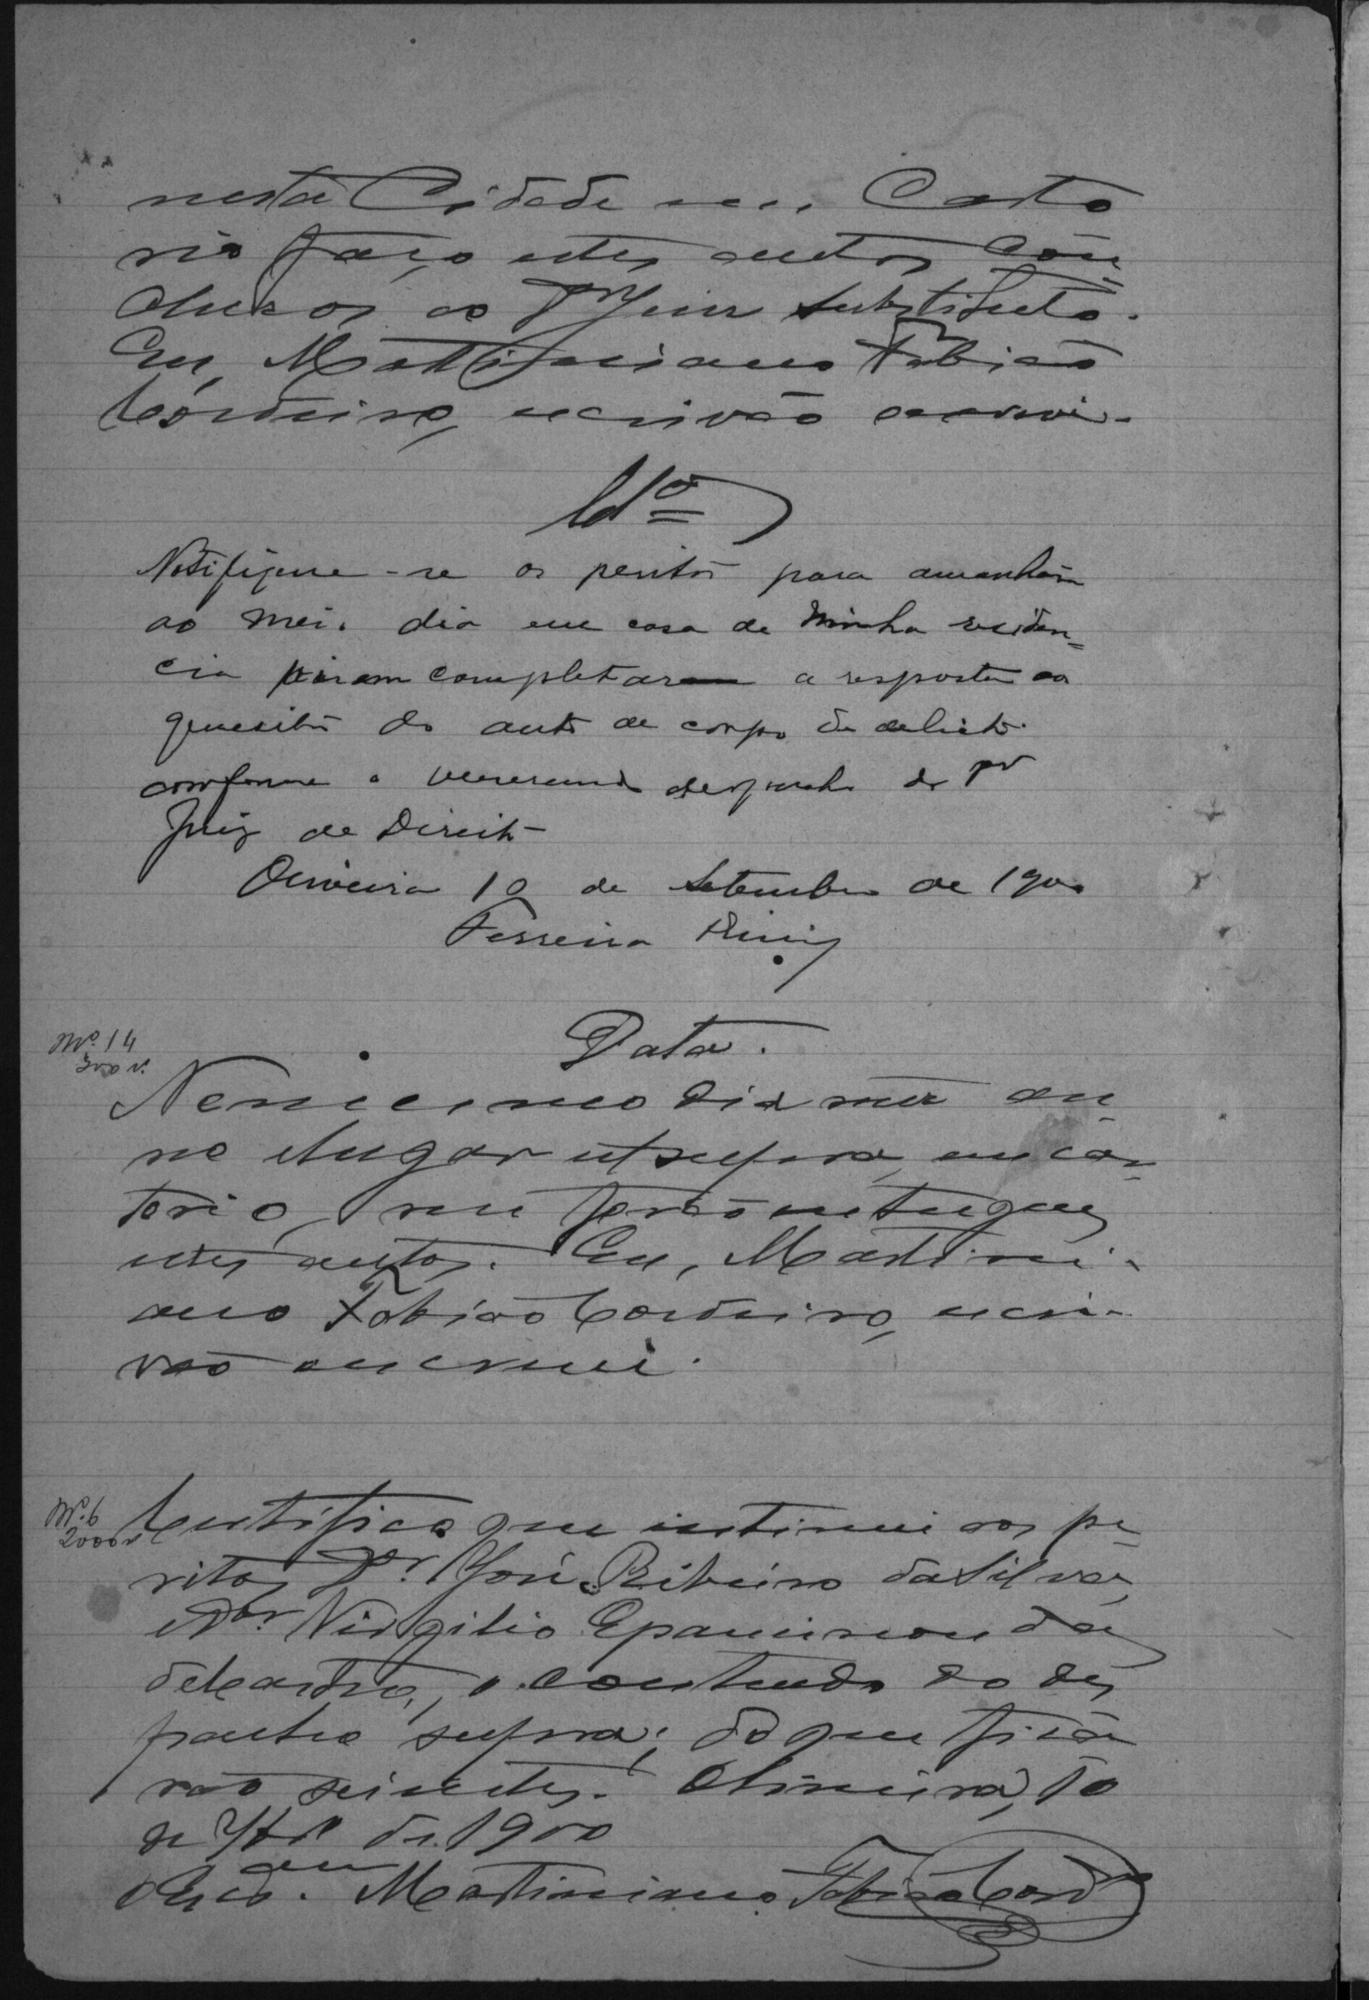 nesta Cidade em Carto
rio faço estes autos con
clusos ao Dr Juiz Substituto.
Eu, Martiniano Fabião
Cordeiro, escrivão escrevi.
Clo
Notifique-se os peritos para amanham
ao meio dia em casa de minha residen=
cia para completarem a resposta ao
quesito do auto de corpo de delicto
conforme o venerando despacho do Dr
Juiz de Direito
Oliveira 10 de Setembro de 1900
Ferreira Diniz
Data.
No. 14
300 r.
No mesmo dia mez an
no e lugar ut supra, em car
torio, me forão entregues
estes autos. Eu, Martini-
ano Fabião Cordeiro, escri-
vão escrevi.
No. 6
2000 r
Certifico que intimei aos pe
ritos Dr. José Ribeiro da Silva,
e Dr. Virgilio Epaminondas
de Castro, o contendo do des
pacho supra; do que ficá
rão scientes. Oliveira, 10
de 7bro de 1900
O Escram. Martiniano Fabião Cord